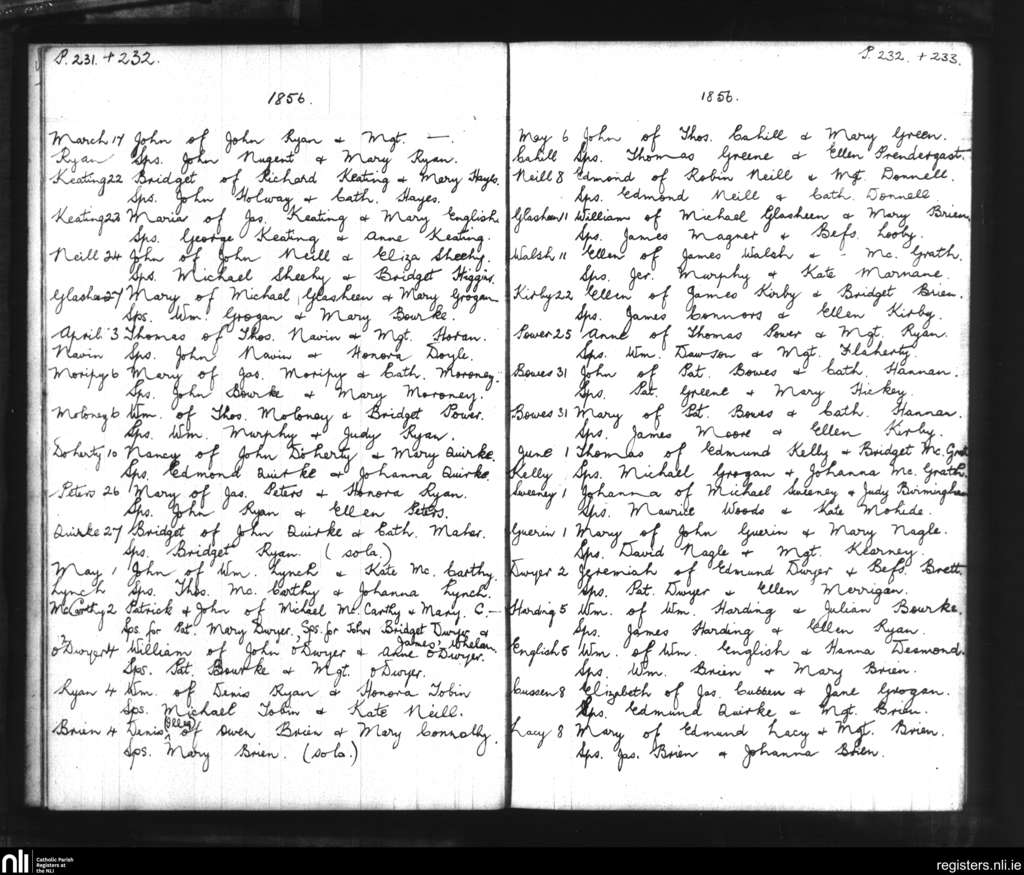 P. 231. + 232.
1856.
March 17 John of John Ryan & Mgt. —
Ryan Sps. John Nugent & Mary Ryan.
Keating 22 Bridget of Richard Keating & Mary Hayes.
Sps. John Holway & Cath. Hayes.
Keating 23 Maria of Jas. Keating & Mary English
Sps. George Keating & Anne Keating.
Neill 24 John of John Neill & Eliza Sheehy.
Sps. Michael Sheehy & Bridget Higgins.
Glasheen 27 Mary of Michael Glasheen & Mary Grogan
Sps. Wm. Grogan & Mary Bourke.
April 3 Thomas of Thos. Navin & Mgt. Horan.
Navin Sps. John Navin & Honora Doyle.
Moripy 6 Mary of Jas. Moripy & Cath. Moroney.
Sps. John Bourke & Mary Moroney.
Moloney 6 Wm. of Thos. Moloney & Bridget Power.
Sps. Wm. Murphy & Judy Ryan.
Doherty 10 Nancy of John Doherty & Mary Quirke.
Sps. Edmond Quirke & Johanna Quirke
Peters 26 Mary of Jas. Peters & Honora Ryan.
Sps. John Ryan & Ellen Peters.
Quirke 27 Bridget of John Quirke & Cath. Maher.
Sps. Bridget Ryan. (sola.)
May 1 Jhn of Wm. Lynch & Kate Mc. Carthy.
Lynch Sps. Thos. Mc. Carthy & Johanna Lynch.
McCarthy 2 Patrick & John of Michael Mc. Carthy & Mary C. —
Sps. for Pat. Mary Dwyer, Sps. for John Bridget Dwyer &
James Whelan.
O'Dwyer 4 William of John O'Dwyer & Anne O'Dwyer.
Sps. Pat. Bourke & Mgt. O'Dwyer.
Ryan 4 Wm. of Denis Ryan & Honora Tobin
Sps. Michael Tobin & Kate Neill.
Brien 4 Denis of Owen Brien & Mary Connolly.
Sps. Mary Brien. (sola.)
P. 232. + 233.
1856.
May 6 John of Thos. Cahill & Mary Green.
Cahill Sps. Thomas Greene & Ellen Prendergast.
Neill 8 Edmond of Robin Neill & Mgt Donnell.
Sps. Edmond Neill & Cath. Donnell.
Glasheen 11 William of Michael Glasheen & Mary Brien
Sps. James Magner & Befs. Looby.
Walsh 11 Ellen of James Walsh & - Mc. Grath.
Sps. Jer. Murphy & Kate Marnane.
Kirby 22 Ellen of James Kirby & Bridget Brien.
Sps. James Connors & Ellen Kirby.
Power 25 Anne of Thomas Power & Mgt. Ryan.
Sps. Wm. Dawson & Mgt. Flaherty.
Bowes 31 John of Pat. Bowes & Cath. Hannan.
Sps. Pat Greene & Mary Hickey.
Bowes 31 Mary of Pat. Bowes & Cath. Hannan.
Sps. James Moore & Ellen Kirby.
June 1 Thomas of Edmund Kelly & Bridget Mc. Grath
Kelly Sps. Michael Grogan & Johanna Mc. Grath.
Sweeney 1 Johanna of Michael Sweeney & Judy Birmingham
Sps. Maurice Woods & Kate Mohide.
Guerin 1 Mary of John Guerin & Mary Nagle.
Sps. David Nagle & Mgt. Kearney.
Dwyer 2 Jeremiah of Edmund Dwyer & Befs. Brett.
Sps. Pat. Dwyer & Ellen Merrigan.
Harding 5 Wm. of Wm. Harding & Julian Bourke.
Sps. James Harding & Ellen Ryan.
English 5 Wm. of Wm. English & Hanna Desmond.
Sps. Wm. Brien & Mary Brien.
Cussen 8 Elizabeth of Jas. Cussen & Jane Grogan.
Sps. Edmund Quirke & Mgt. Brien.
Lacy 8 Mary of Edmund Lacy & Mgt. Brien.
Sps. Jas. Brien & Johanna Brien.
nli Catholic Parish
Registers at
the NLI
registers.nli.ie